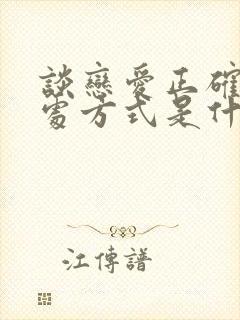 談戀愛正確
處方式是什
江傳譜